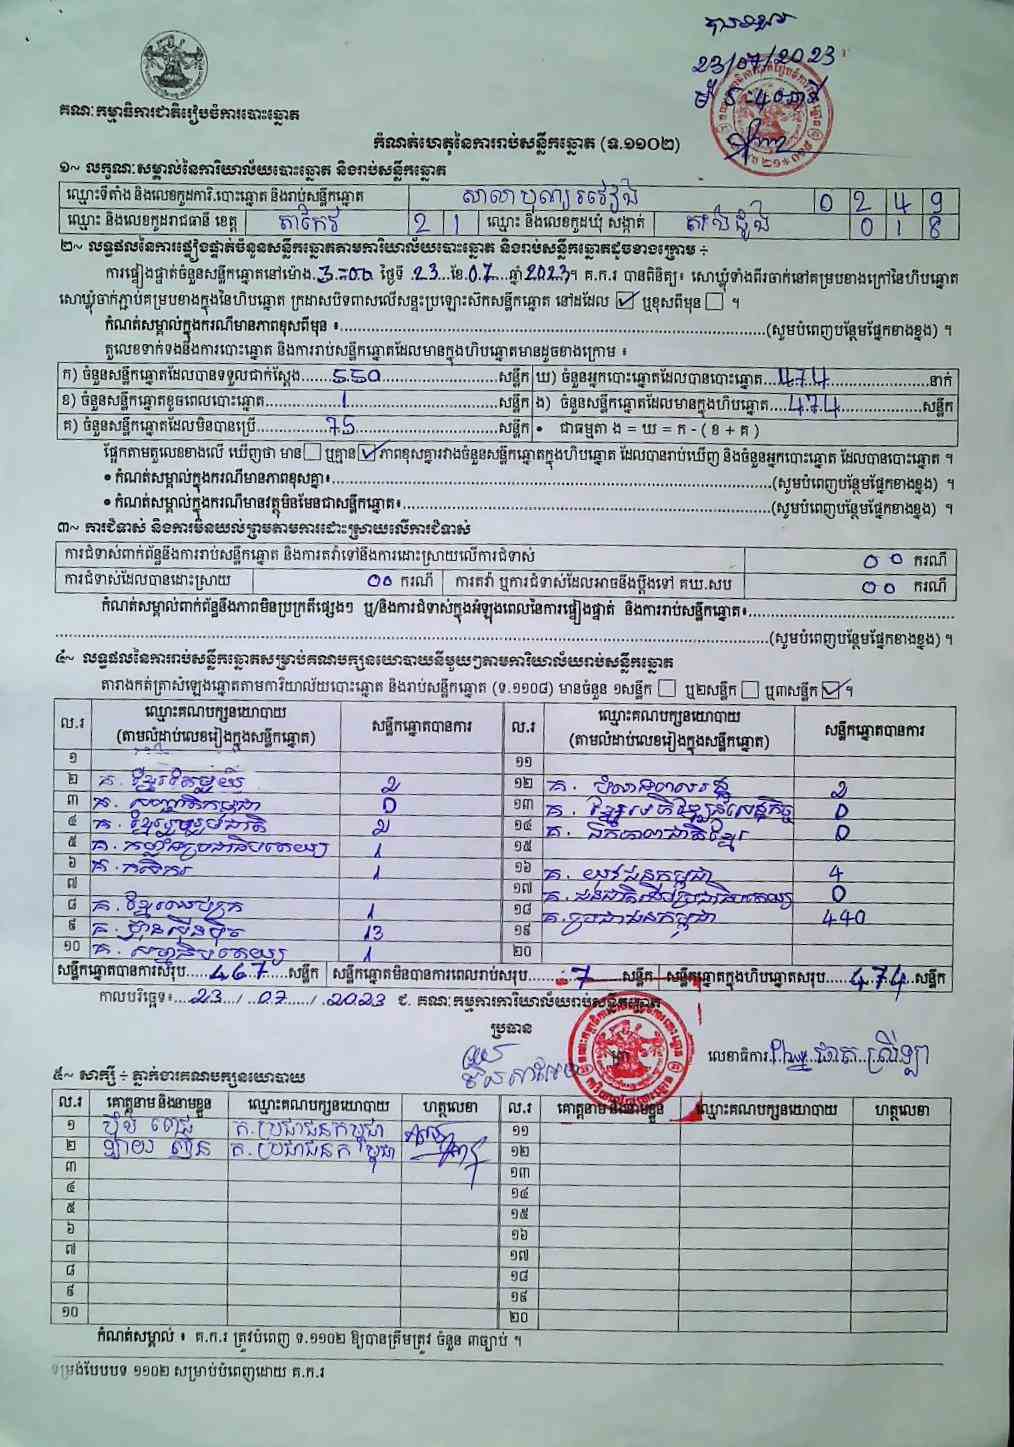 បានទទួល
23/07/2023
ម៉ោង 5:40 នាទី
គណៈកម្មាធិការជាតិរៀបចំការបោះឆ្នោត
កំណត់ហេតុនៃការរាប់សន្លឹកឆ្នោត (ទ.១១០២)
១~ លក្ខណៈសម្គាល់នៃការិយាល័យបោះឆ្នោត និងរាប់សន្លឹកឆ្នោត
ឈ្មោះទីតាំង និងលេខកូដការិ.បោះឆ្នោត និងរាប់សន្លឹកឆ្នោត សាលាបុណ្យ 0 2 4 9
ឈ្មោះ និងលេខកូដរាជធានី ខេត្ត តាកែវ 2 1 ឈ្មោះ និងលេខកូដឃុំ សង្កាត់ 0 1 8
២~ លទ្ធផលនៃការផ្ទៀងផ្ទាត់ចំនួនសន្លឹកឆ្នោតតាមការិយាល័យបោះឆ្នោត និងរាប់សន្លឹកឆ្នោតដូចខាងក្រោម ÷
ការផ្ទៀងផ្ទាត់ចំនួនសន្លឹកឆ្នោតនៅម៉ោង.3-00 ថ្ងៃទី.23.ខែ.07.ឆ្នាំ2023។ គ.ក.រ បានពិនិត្យ៖ សោឃ្លុំទាំងពីរចាក់នៅគម្របខាងក្រៅនៃហិបឆ្នោត
សោឃ្លុំចាក់ភ្ជាប់គម្របខាងក្នុងនៃហិបឆ្នោត ក្រដាសបិទពាសលើសន្ទះប្រឡោះសឹកសន្លឹកឆ្នោត នៅដដែល ☑ ឬខុសពីមុន ☐ ។
កំណត់សម្គាល់ក្នុងករណីមានភាពខុសពីមុន ៖..........(សូមបំពេញបន្ថែមផ្នែកខាងខ្នង) ។
តួលេខទាក់ទងនឹងការបោះឆ្នោត និងការរាប់សន្លឹកឆ្នោតដែលមានក្នុងហិបឆ្នោតមានដូចខាងក្រោម ៖
ក) ចំនួនសន្លឹកឆ្នោតដែលបានទទួលជាក់ស្តែង.......550.......សន្លឹក ឃ) ចំនួនអ្នកបោះឆ្នោតដែលបានបោះឆ្នោត...474.......នាក់
ខ) ចំនួនសន្លឹកឆ្នោតខូចពេលបោះឆ្នោត.......1.......សន្លឹក ង) ចំនួនសន្លឹកឆ្នោតដែលមានក្នុងហិបឆ្នោត...474.......សន្លឹក
គ) ចំនួនសន្លឹកឆ្នោតដែលមិនបានប្រើ.......75.......សន្លឹក • ជាធម្មតា ង = ឃ = ក - ( ខ + គ )
ផ្អែកតាមតួលេខខាងលើ ឃើញថា មាន☐ ឬគ្មាន☑ ភាពខុសគ្នារវាងចំនួនសន្លឹកឆ្នោតក្នុងហិបឆ្នោត ដែលបានរាប់ឃើញ និងចំនួនអ្នកបោះឆ្នោត ដែលបានបោះឆ្នោត ។
• កំណត់សម្គាល់ក្នុងករណីមានភាពខុសគ្នា៖..........(សូមបំពេញបន្ថែមផ្នែកខាងខ្នង) ។
• កំណត់សម្គាល់ក្នុងករណីមានវត្ថុមិនមែនជាសន្លឹកឆ្នោត៖..........(សូមបំពេញបន្ថែមផ្នែកខាងខ្នង) ។
៣~ ការជំទាស់ និងការមិនយល់ព្រមតាមការដោះស្រាយលើការជំទាស់
ការជំទាស់ពាក់ព័ន្ធនឹងការរាប់សន្លឹកឆ្នោត និងការតវ៉ាទៅនឹងការដោះស្រាយលើការជំទាស់ 00 ករណី
ការជំទាស់ដែលបានដោះស្រាយ 00 ករណី ការតវ៉ា ឬការជំទាស់ដែលអាចនឹងប្តឹងទៅ គឃ.សប 00 ករណី
កំណត់សម្គាល់ពាក់ព័ន្ធនឹងភាពមិនប្រក្រតីផ្សេងៗ ឬ/និងការជំទាស់ក្នុងអំឡុងពេលនៃការផ្ទៀងផ្ទាត់ និងការរាប់សន្លឹកឆ្នោត៖..........
..........(សូមបំពេញបន្ថែមផ្នែកខាងខ្នង) ។
៤~ លទ្ធផលនៃការរាប់សន្លឹកឆ្នោតសម្រាប់គណបក្សនយោបាយនីមួយៗតាមការិយាល័យរាប់សន្លឹកឆ្នោត
តារាងកត់ត្រាសំឡេងឆ្នោតតាមការិយាល័យបោះឆ្នោត និងរាប់សន្លឹកឆ្នោត (ទ.១១០៨) មានចំនួន ១សន្លឹក ☐ ឬ២សន្លឹក ☐ ឬ៣សន្លឹក ☑ ។
ល.រ ឈ្មោះគណបក្សនយោបាយ (តាមលំដាប់លេខរៀងក្នុងសន្លឹកឆ្នោត) សន្លឹកឆ្នោតបានការ ល.រ ឈ្មោះគណបក្សនយោបាយ (តាមលំដាប់លេខរៀងក្នុងសន្លឹកឆ្នោត) សន្លឹកឆ្នោតបានការ
១ ១១
២ គ. ខ្មែរតែមួយ 2 ១២ គ. 2
៣ គ. សញ្ជាតិកម្ពុជា 0 ១៣ គ. ខ្មែរអភិវឌ្ឍន៍សេដ្ឋកិច្ច 0
៤ គ. ខ្មែររួបរួមជាតិ 2 ១៤ គ. ឯកភាពជាតិខ្មែរ 0
៥ គ. ប្រជាធិបតេយ្យ 1 ១៥
៦ គ. កសិករ 1 ១៦ គ. យុវជនកម្ពុជា 4
៧ ១៧ គ. ជនជាតិដើមប្រជាធិបតេយ្យ 0
៨ គ. ខ្មែរឈប់ក្រ 1 ១៨ គ. ប្រជាជនកម្ពុជា 440
៩ គ. ហ៊្វុនស៊ិនប៉ិច 13 ១៩
១០ គ. សម្ព័ន្ធ 1 ២០
សន្លឹកឆ្នោតបានការសរុប.....467.....សន្លឹក សន្លឹកឆ្នោតមិនបានការពេលរាប់សរុប.....7.....សន្លឹក សន្លឹកឆ្នោតក្នុងហិបឆ្នោតសរុប.....474.....សន្លឹក
កាលបរិច្ឆេទ៖....23..../..07..../..2023 ជ. គណៈកម្មការការិយាល័យរាប់សន្លឹកឆ្នោត
ប្រធាន
លេខាធិការ
៥~ សាក្សី ÷ ភ្នាក់ងារគណបក្សនយោបាយ
ល.រ គោត្តនាម និងនាមខ្លួន ឈ្មោះគណបក្សនយោបាយ ហត្ថលេខា ល.រ គោត្តនាម និងនាមខ្លួន ឈ្មោះគណបក្សនយោបាយ ហត្ថលេខា
១ គ. ប្រជាជនកម្ពុជា ១១
២ គ. ប្រជាជនកម្ពុជា ១២
៣ ១៣
៤ ១៤
៥ ១៥
៦ ១៦
៧ ១៧
៨ ១៨
៩ ១៩
១០ ២០
កំណត់សម្គាល់ ៖ គ.ក.រ ត្រូវបំពេញ ទ.១១០២ ឱ្យបានត្រឹមត្រូវ ចំនួន ៣ច្បាប់ ។
ទម្រង់បែបបទ ១១០២ សម្រាប់បំពេញដោយ គ.ក.រ